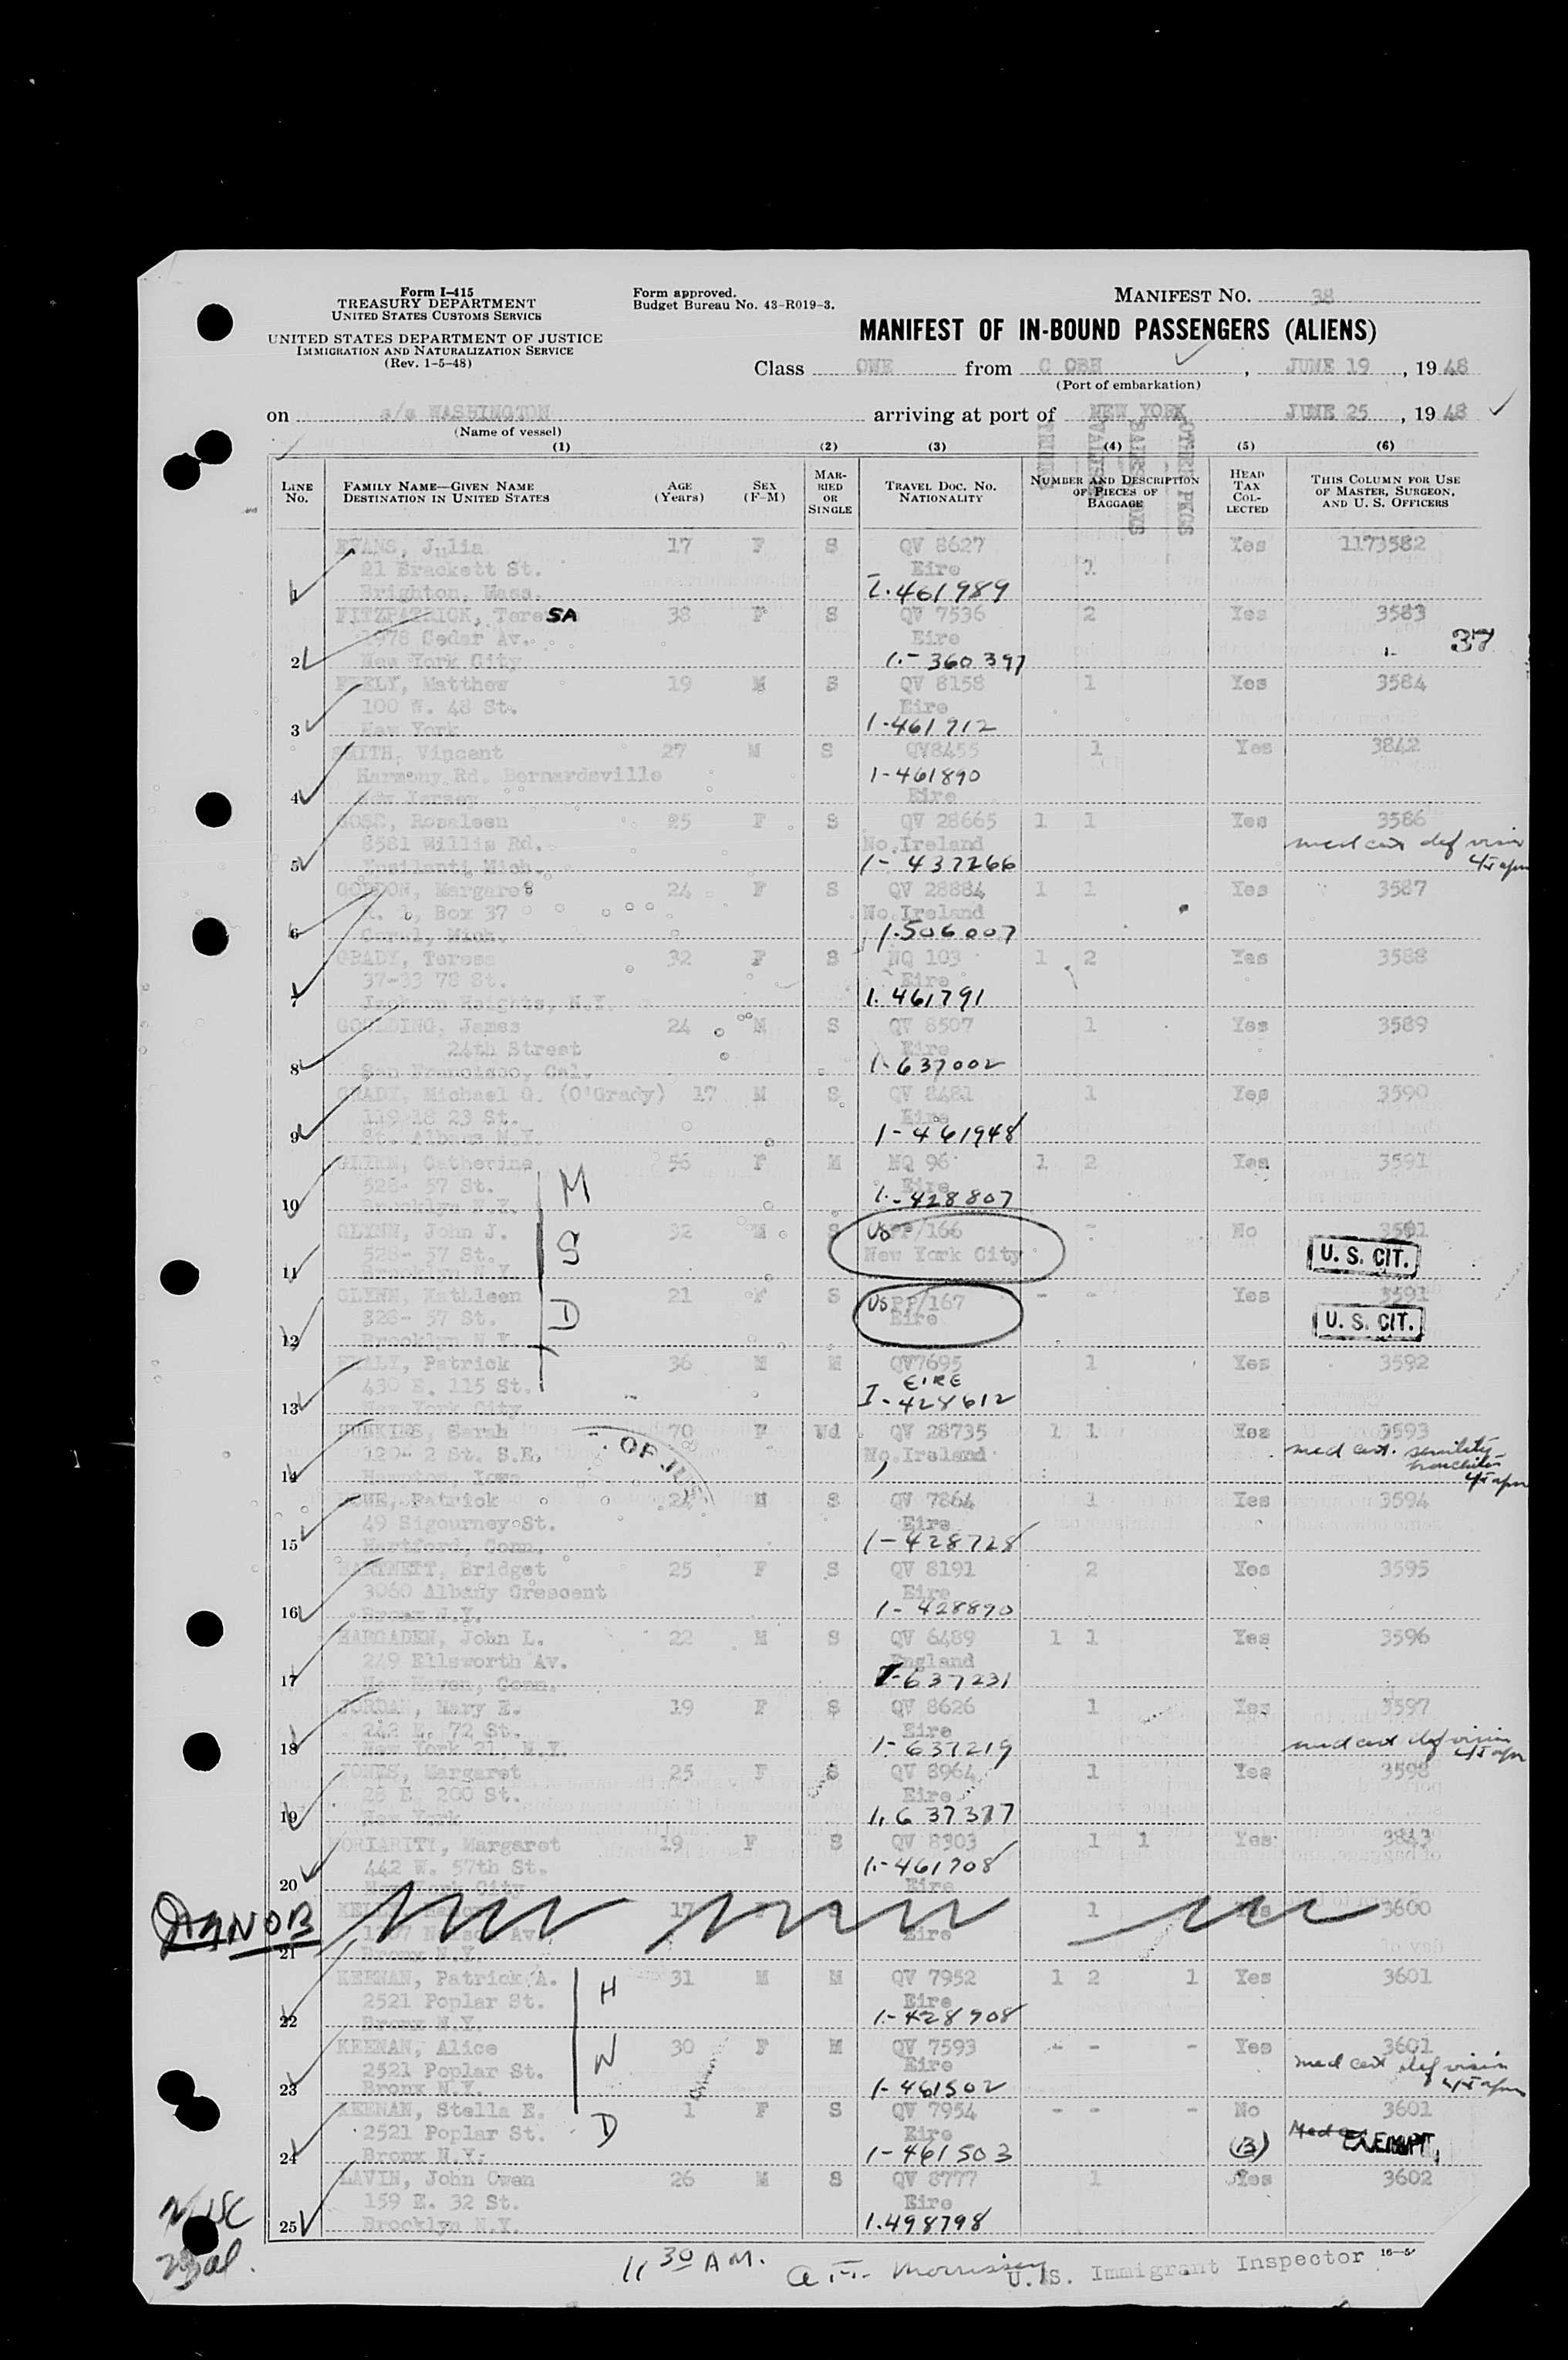 Form I-415
TREASURY DEPARTMENT
UNITED STATES CUSTOMS SERVICE
UNITED STATES DEPARTMENT OF JUSTICE
IMMIGRATION AND NATURALIZATION SERVICE
(Rev. 1-5-48)
Form approved.
Budget Bureau No. 43-R019-3.
MANIFEST NO. 38
MANIFEST OF IN-BOUND PASSENGERS (ALIENS)
Class ONE from C OBH, JUNE 19, 1948
(Port of embarkation)
on s/s WASHINGTON arriving at port of NEW YORK JUNE 25, 1948
(Name of vessel)
(1) (2) (3) (4) (5) (6)
LINE No. FAMILY NAME—GIVEN NAME DESTINATION IN UNITED STATES AGE (Years) SEX (F-M) MARRIED OR SINGLE TRAVEL DOC. NO. NATIONALITY NUMBER AND DESCRIPTION OF PIECES OF BAGGAGE HEAD TAX COLLECTED THIS COLUMN FOR USE OF MASTER, SURGEON, AND U. S. OFFICERS
EVANS, Julia 17 F S QV 8627 Yes 1173582
21 Brackett St. Eire 1
1 Brighton, Mass. I-461989
FITZPATRICK, TereSA 38 F S QV 7536 2 Yes 3583
1978 Cedar Av. Eire 37
2 New York City 1-360397
FEELY, Matthew 19 M S QV 8158 1 Yes 3584
100 W. 48 St. Eire
3 New York 1-461912
SMITH, Vincent 27 M S QV8455 1 Yes 3842
Harmony Rd. Bernardsville 1-461890
4 New Jersey Eire
GOSS, Rosaleen 25 F S QV 28665 1 1 Yes 3586
8581 Willis Rd. No.Ireland med cert def vision
5 Ypsilanti Mich. 1-437266
GORDON, Margaret 24 F S QV 28884 1 1 Yes 3587
R. 1, Box 37 No.Ireland
6 Mich. 1-506007
GRADY, Teresa 32 F S NQ 103 1 2 Yes 3588
37-33 78 St. Eire
7 Jackson Heights, N.Y. 1-461791
GOULDING, James 24 M S QV 8507 1 Yes 3589
24th Street Eire
8 San Francisco, Cal. 1-637002
GRADY, Michael G. (O'Grady) 17 M S QV 8481 1 Yes 3590
119-18 23 St. Eire
9 St. Albans N.Y. 1-461948
GLYNN, Catherine 56 F M NQ 96 1 2 Yes 3591
528- 57 St. Eire M
10 Brooklyn N.Y. 1-428807
GLYNN, John J. 32 M S US PP/166 - No 3591
528- 57 St. S New York City U. S. CIT.
11 Brooklyn N.Y.
GLYNN, Kathleen 21 F S US PP/167 - - Yes 3591
528- 57 St. D Eire U. S. CIT.
12 Brooklyn N.Y.
HEALY, Patrick 36 M M QV7695 1 Yes 3592
430 E. 115 St. EIRE
13 New York City I-428612
Sarah 70 F Wd QV 28735 1 1 Yes 3593
120- 2 St. S.E. OF JUS No.Ireland med cert. senility
14 Hampton, Iowa
HOWE, Patrick 24 M S QV 7864 1 Yes 3594
49 Sigourney St. Eire
15 Hartford, Conn. 1-428728
HARTNETT, Bridget 25 F S QV 8191 2 Yes 3595
3060 Albany Crescent Eire
16 Bronx N.Y. 1-428890
HARGADEN, John L. 22 M S QV 6489 1 1 Yes 3596
249 Ellsworth Av. England
17 New Haven, Conn. 1-637231
JORDAN, Mary E. 19 F S QV 8626 1 Yes 3597
242 E. 72 St. Eire
18 New York 21, N.Y. 1-637219 med cert def vision
JONES, Margaret 25 F S QV 8964 1 Yes 3598
28 E. 200 St. Eire
19 New York 1-637377
MORIARITY, Margaret 19 F S QV 8303 1 1 Yes 3843
442 W. 57th St. 1-461708
20 New York City Eire
17 1 Yes 3600
Av. Eire
21 Bronx N.Y.
KEENAN, Patrick A. 31 M M QV 7952 1 2 1 Yes 3601
2521 Poplar St. H Eire
22 Bronx N.Y. 1-428908
KEENAN, Alice 30 F M QV 7593 - - - Yes 3601
2521 Poplar St. W Eire med cert def vision
23 Bronx N.Y. 1-461502
KEENAN, Stella E. 1 F S QV 7954 - - - No 3601
2521 Poplar St. D Eire EXEMPT
24 Bronx N.Y. 1-461503
LAVIN, John Owen 26 M S QV 8777 1 Yes 3602
159 E. 32 St. Eire
25 Brooklyn N.Y. 1-498798
11 30 AM. Morrissey U.S. Immigrant Inspector